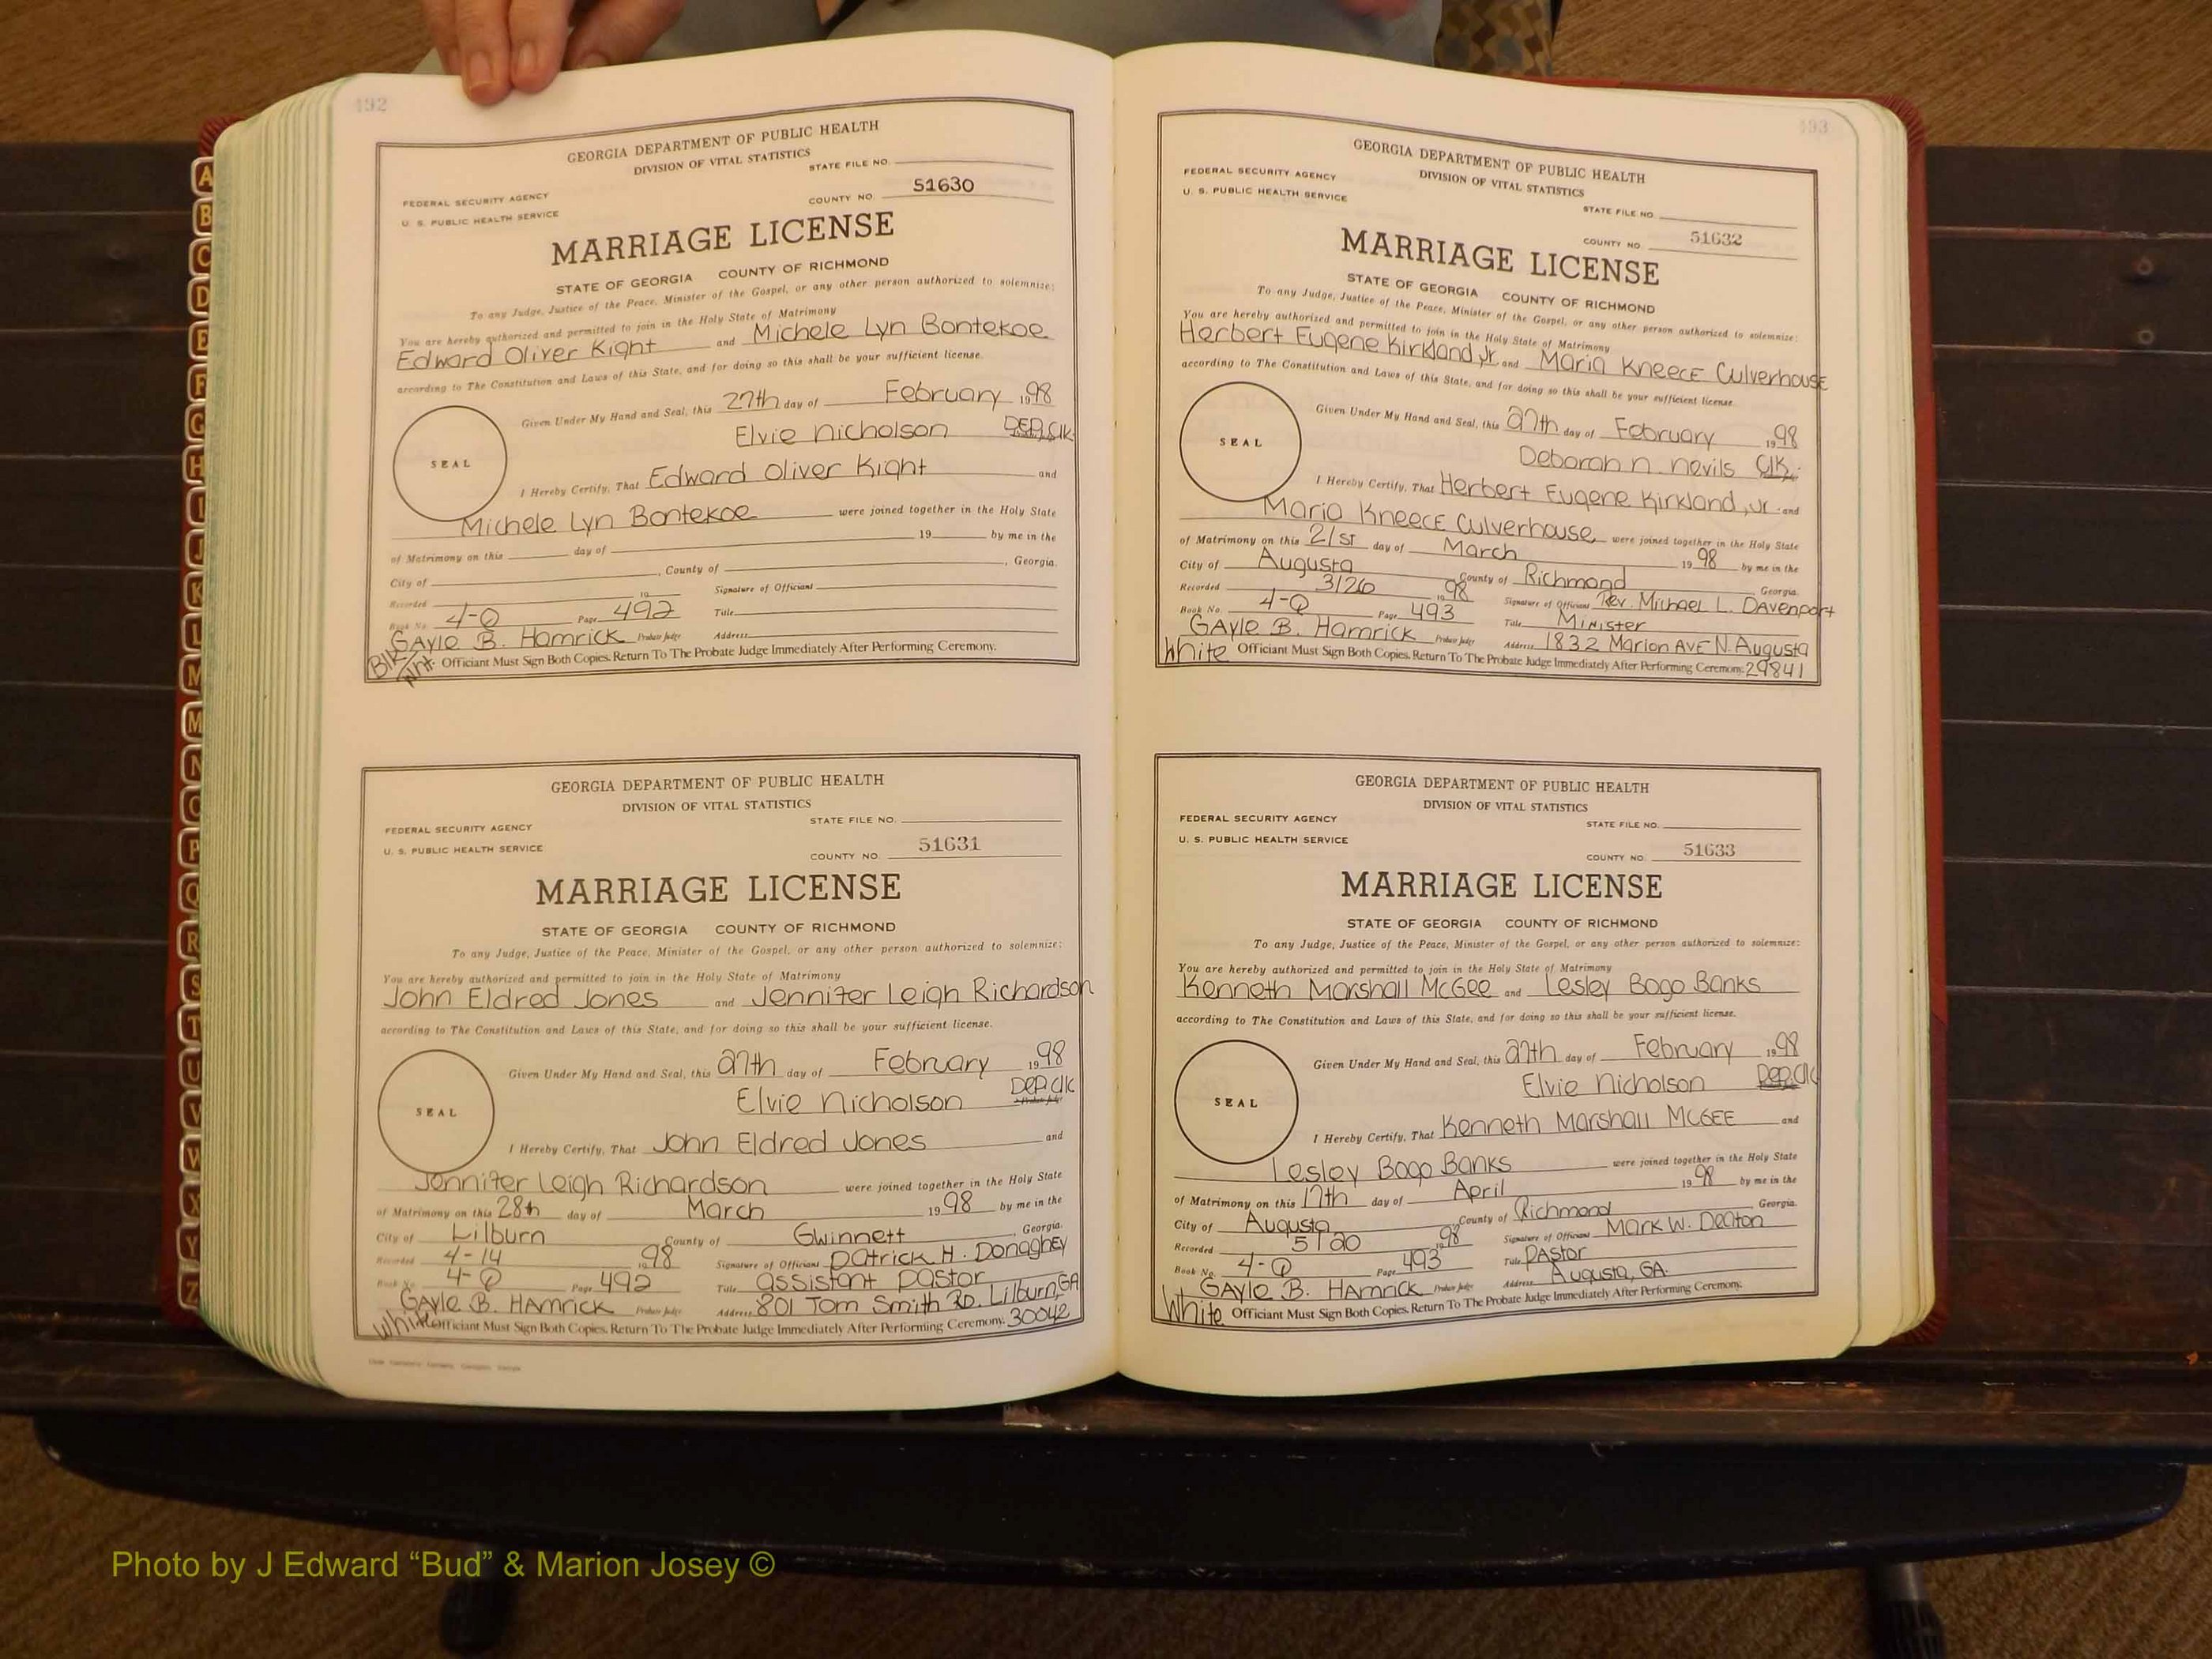 492
GEORGIA DEPARTMENT OF PUBLIC HEALTH
DIVISION OF VITAL STATISTICS
STATE FILE NO.
FEDERAL SECURITY AGENCY
U. S. PUBLIC HEALTH SERVICE
COUNTY NO. 51630
MARRIAGE LICENSE
STATE OF GEORGIA COUNTY OF RICHMOND
To any Judge, Justice of the Peace, Minister of the Gospel, or any other person authorized to solemnize:
You are hereby authorized and permitted to join in the Holy State of Matrimony
Edward Oliver Kight and Michele Lyn Bontekoe
according to The Constitution and Laws of this State, and for doing so this shall be your sufficient license.
Given Under My Hand and Seal, this 27th day of February 1998
Elvie Nicholson DEP. Clk.
SEAL
I Hereby Certify, That Edward Oliver Kight and
Michele Lyn Bontekoe were joined together in the Holy State
of Matrimony on this day of 19 by me in the
City of , County of , Georgia.
Recorded 19 Signature of Officiant
Book No. 4-Q Page 492 Title
GAYLE B. HAMRICK Probate Judge Address
Blk/Wht. Officiant Must Sign Both Copies. Return To The Probate Judge Immediately After Performing Ceremony.
GEORGIA DEPARTMENT OF PUBLIC HEALTH
DIVISION OF VITAL STATISTICS
STATE FILE NO.
FEDERAL SECURITY AGENCY
U. S. PUBLIC HEALTH SERVICE
COUNTY NO. 51631
MARRIAGE LICENSE
STATE OF GEORGIA COUNTY OF RICHMOND
To any Judge, Justice of the Peace, Minister of the Gospel, or any other person authorized to solemnize:
You are hereby authorized and permitted to join in the Holy State of Matrimony
John Eldred Jones and Jennifer Leigh Richardson
according to The Constitution and Laws of this State, and for doing so this shall be your sufficient license.
Given Under My Hand and Seal, this 27th day of February 1998
Elvie Nicholson DEP. Clk
SEAL
I Hereby Certify, That John Eldred Jones and
Jennifer Leigh Richardson were joined together in the Holy State
of Matrimony on this 28th day of March 1998 by me in the
City of Lilburn County of Gwinnett, Georgia.
Recorded 4-14 1998 Signature of Officiant Patrick H. Donaghey
Book No. 4-Q Page 492 Title Assistant Pastor
GAYLE B. HAMRICK Probate Judge Address 801 Tom Smith RD. Lilburn, GA
White Officiant Must Sign Both Copies. Return To The Probate Judge Immediately After Performing Ceremony. 30042
493
GEORGIA DEPARTMENT OF PUBLIC HEALTH
DIVISION OF VITAL STATISTICS
FEDERAL SECURITY AGENCY
U. S. PUBLIC HEALTH SERVICE
STATE FILE NO.
COUNTY NO. 51632
MARRIAGE LICENSE
STATE OF GEORGIA COUNTY OF RICHMOND
To any Judge, Justice of the Peace, Minister of the Gospel, or any other person authorized to solemnize:
You are hereby authorized and permitted to join in the Holy State of Matrimony
Herbert Eugene Kirkland, Jr. and Maria Kneece Culverhouse
according to The Constitution and Laws of this State, and for doing so this shall be your sufficient license.
Given Under My Hand and Seal, this 27th day of February 1998
Deborah N. Nevils Clk.
SEAL
I Hereby Certify, That Herbert Eugene Kirkland, Jr. and
Maria Kneece Culverhouse were joined together in the Holy State
of Matrimony on this 21st day of March 1998 by me in the
City of Augusta County of Richmond Georgia.
Recorded 3/26 1998 Signature of Officiant Rev. Michael L. Davenport
Book No. 4-Q Page 493 Title Minister
GAYLE B. HAMRICK Probate Judge Address 1832 Marion AVE N. Augusta
White Officiant Must Sign Both Copies. Return To The Probate Judge Immediately After Performing Ceremony. 29841
GEORGIA DEPARTMENT OF PUBLIC HEALTH
DIVISION OF VITAL STATISTICS
FEDERAL SECURITY AGENCY
STATE FILE NO.
U. S. PUBLIC HEALTH SERVICE
COUNTY NO. 51633
MARRIAGE LICENSE
STATE OF GEORGIA COUNTY OF RICHMOND
To any Judge, Justice of the Peace, Minister of the Gospel, or any other person authorized to solemnize:
You are hereby authorized and permitted to join in the Holy State of Matrimony
Kenneth Marshall McGee and Lesley Bogo Banks
according to The Constitution and Laws of this State, and for doing so this shall be your sufficient license.
Given Under My Hand and Seal, this 27th day of February 1998
Elvie Nicholson Dep. Clk
SEAL
I Hereby Certify, That Kenneth Marshall McGEE and
Lesley Bogo Banks were joined together in the Holy State
of Matrimony on this 17th day of April 1998 by me in the
City of Augusta County of Richmond, Georgia.
Recorded 5/20 1998 Signature of Officiant Mark W. Deaton
Book No. 4-Q Page 493 Title Pastor
GAYLE B. HAMRICK Probate Judge Address Augusta, GA.
White Officiant Must Sign Both Copies. Return To The Probate Judge Immediately After Performing Ceremony.
A
B
C
D
E
F
G
H
I
J
K
L
M
M
N
O
P
Q
R
S
T
U
V
W
X
Y
Z
Photo by J Edward “Bud” & Marion Josey ©